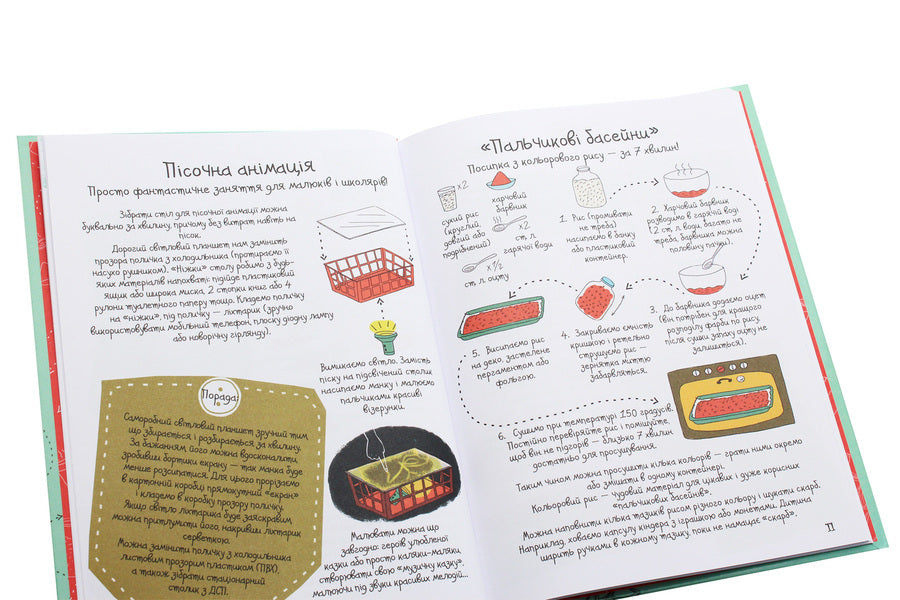 Пісочна анімація
Просто фантастичне заняття для малюків і школярів!
Зібрати стіл для пісочної анімації можна
буквально за хвилину, причому без витрат навіть на
пісок.
Дорогий світловий планшет нам замінить
прозора поличка з холодильника (протираємо її
насухо рушником). «Ніжки» столу робимо з будь-
яких матеріалів напохваті: підійде пластиковий
ящик або широка миска, 2 стопки книг або 4
рулони туалетного паперу тощо. Кладемо поличку
на «ніжки», під поличку — ліхтарик (зручно
використовувати мобільний телефон, плоску діодну лампу
або новорічну гірлянду).
Вимикаємо світло. Замість
піску на підсвічений столик
насипаємо манку і малюємо
пальчиками красиві
візерунки.
Порада!
Саморобний світловий планшет зручний тим,
що збирається і розбирається за хвилину.
За бажанням його можна вдосконалити,
зробивши бортики екрану — так манка буде
менше розсипатися. Для цього прорізаємо
в картонній коробці прямокутний «екран»
і кладемо в коробку прозору поличку.
Якщо світло ліхтарика буде заяскравим,
можна притлумити його, накривши ліхтарик
серветкою.
Можна замінити поличку з холодильника
листовим прозорим пластиком (ПВХ),
а також зібрати стаціонарний
столик з ДСП.
Малювати можна що
завгодно: героїв улюбленої
казки або просто каляки-маляки,
створювати свою «музичну казку»,
малюючи під звуки красивих мелодій...
«Пальчикові басейни»
Посипка з кольорового рису — за 7 хвилин!
x2
сухий рис
(круглий,
довгий або
подрібнений)
харчовий
барвник
x2
ст. л.
гарячої води
x½
ст. л. оцту
1. Рис (промивати
не треба)
насипаємо в банку
або пластиковий
контейнер.
2. Харчовий барвник
розводимо в гарячій воді
(2 ст. л. води, багато не
треба, барвника можна
половину пачки).
3. До барвника додаємо оцет
(він потрібен для кращого
розподілу фарби по рису,
після сушки запаху оцту не
залишиться).
4. Закриваємо ємність
кришкою і ретельно
струшуємо рис —
зернятка миттю
забарвляться.
5. Висипаємо рис
на деко, застелене
пергаментом або
фольгою.
6. Сушимо при температурі 150 градусів.
Постійно перевіряйте рис і помішуйте,
щоб він не підгорів — близько 7 хвилин
достатньо для просушування.
Таким чином можна просушити кілька кольорів — грати ними окремо
або змішати в одному контейнері.
Кольоровий рис — чудовий матеріал для цікавих і дуже корисних
«пальчикових басейнів».
Можна наповнити кілька тазиків рисом різного кольору і шукати скарб.
Наприклад, ховаємо капсулу кіндера з іграшкою або монетами. Дитина
шарить ручками в кожному тазику, поки не намацає «скарб».
11